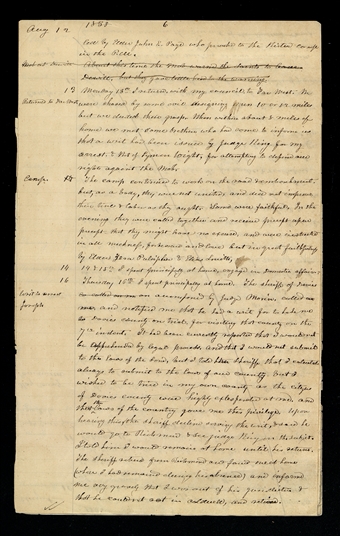 1838 6
Aug 12
love by Elder John E. Page who preached to the Kirtland camp
in the P.M.
About this time the Mob warned the Saints to leave
Dewitt, but they gave little heed to the warning.
13 Monday 13th I returned with my council to Far West. We
Returned to Far West
were chased by some evil designing men 10 or 12 miles
but we eluded their grasp. When within about 8 miles of
home we met some brethren who had come to inform us
that a writ had been issued by Judge King for my
arrest, & that of Lyman Wight, for attempting to defend our
rights against the mob.
Camp. The camp continued to work on the road
but, as a body, they were not united, and did not improve
their time & labor as they ought. Some were faithful. In the
evening they were called together and received precept upon
precept that they might have no excuse, and were instructed
in all meekness, forbearance and love but in great faithfulness
by Elders Zera Pulsipher & Elias Smith.
14 14 & 15th I spent principally at home, engaged in domestic affairs.
16 Thursday 16th I spent principally at home. The sheriff of Davies
Writ to arrest Joseph
accompanied by Judge Morin, called on
me, and notified me that he had a writ for to take me
to Davies county for trial, for visiting that county on the
7th instant. It had been currently reported that I would not
be apprehended by legal process and that I would not submit
to the laws of the land, but I told the Sheriff that I intended
always to submit to the laws of our country but I
wished to be tried in my own county as the citizens
of Davies county were highly exasperated at me and
that the laws of the country gave me this privilege. Upon
hearing this, the sheriff declined serving the writ, and said he
would go to Richmond & see Judge King on the subject.
I told him I would remain at home until his return.
The sheriff returned from Richmond and found me at home
(where I had remained during his absence) and informed
me very gravely that I was out of his jurisdiction &
that he could not act in Caldwell, and retired.